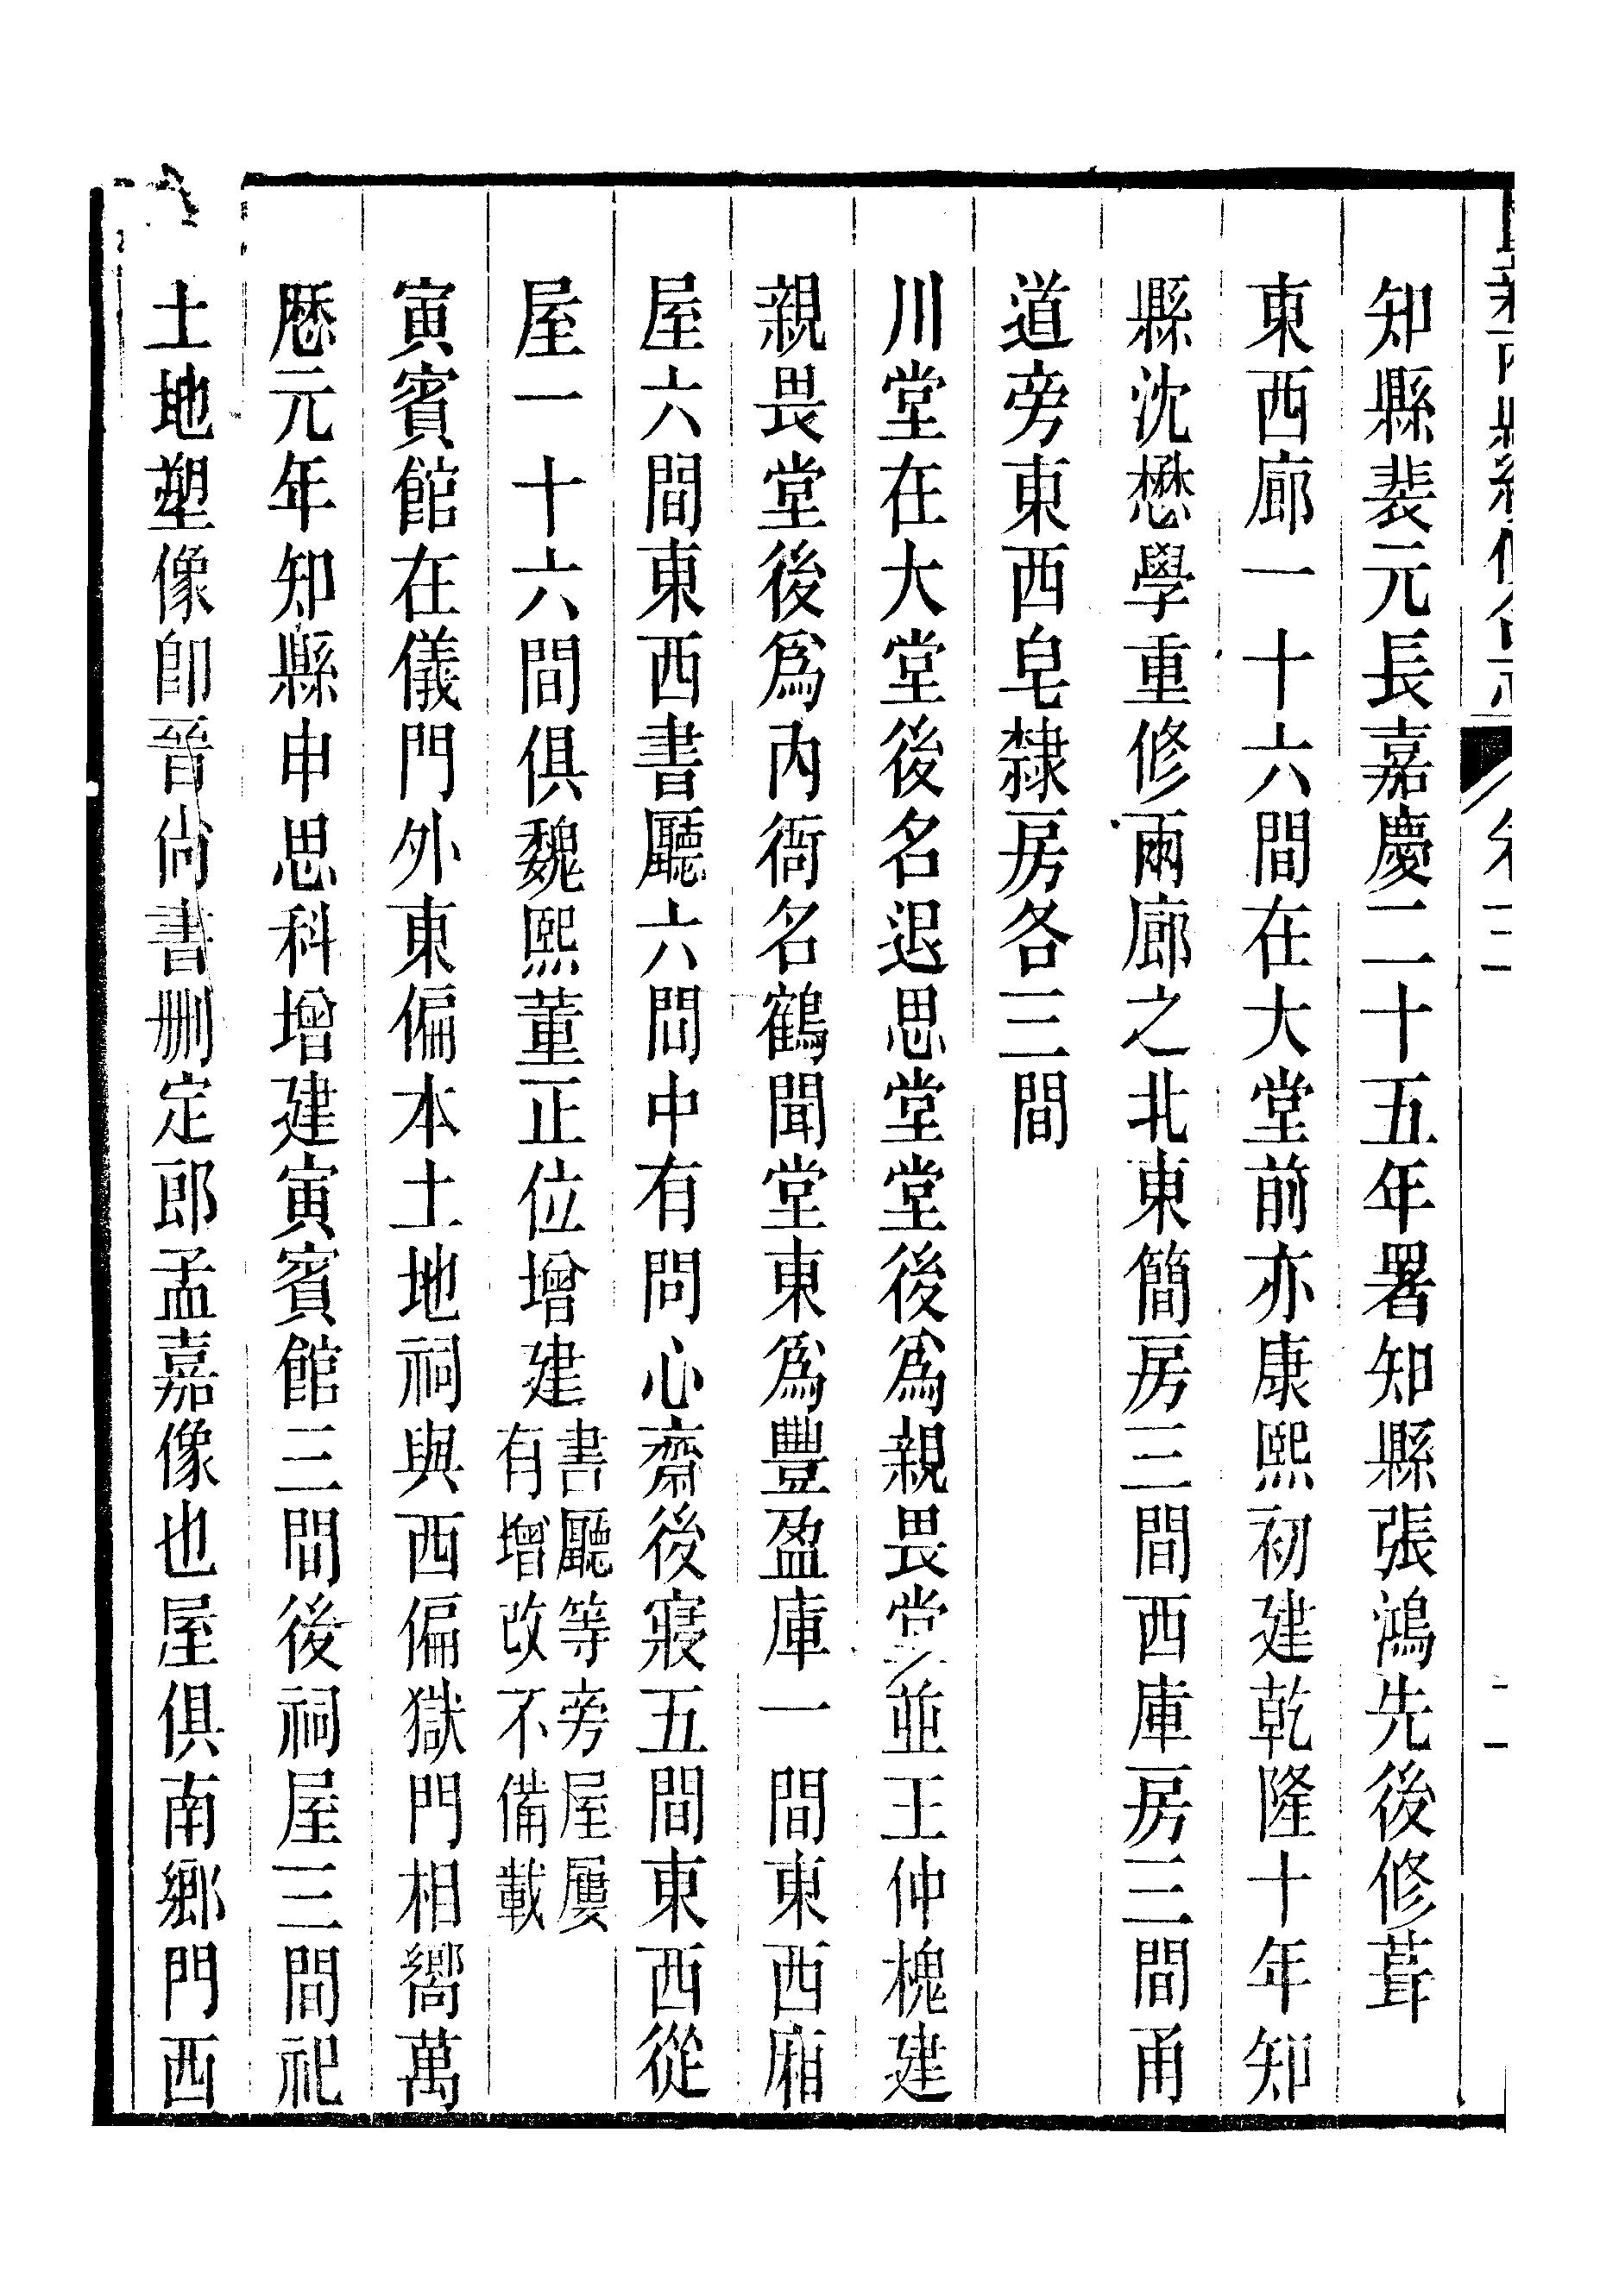 知縣裴元長嘉慶二十五年署知縣張鴻先後修葺
東西廊一十六間在大堂前亦康熙初建乾隆十年知
縣沈懋學重修兩廊之北東簡房三間西庫房三間甬
道旁東西皂隸房各三間
川堂在大堂後名退思堂堂後爲親畏堂並王仲槐建
親畏堂後爲內衙名鶴聞堂東爲豐盈庫一間東西廂
屋六間東西書廳六間中有問心齋後寢五間東西從
屋一十六間俱魏熙董正位增建書廳等旁屋屢有增改不備載
寅賓館在儀門外東偏本土地祠與西偏獄門相嚮萬
厯元年知縣申思科增建寅賓館三間後祠屋三間祀
土地塑像卽晉尙書删定郎孟嘉像也屋俱南鄉門西